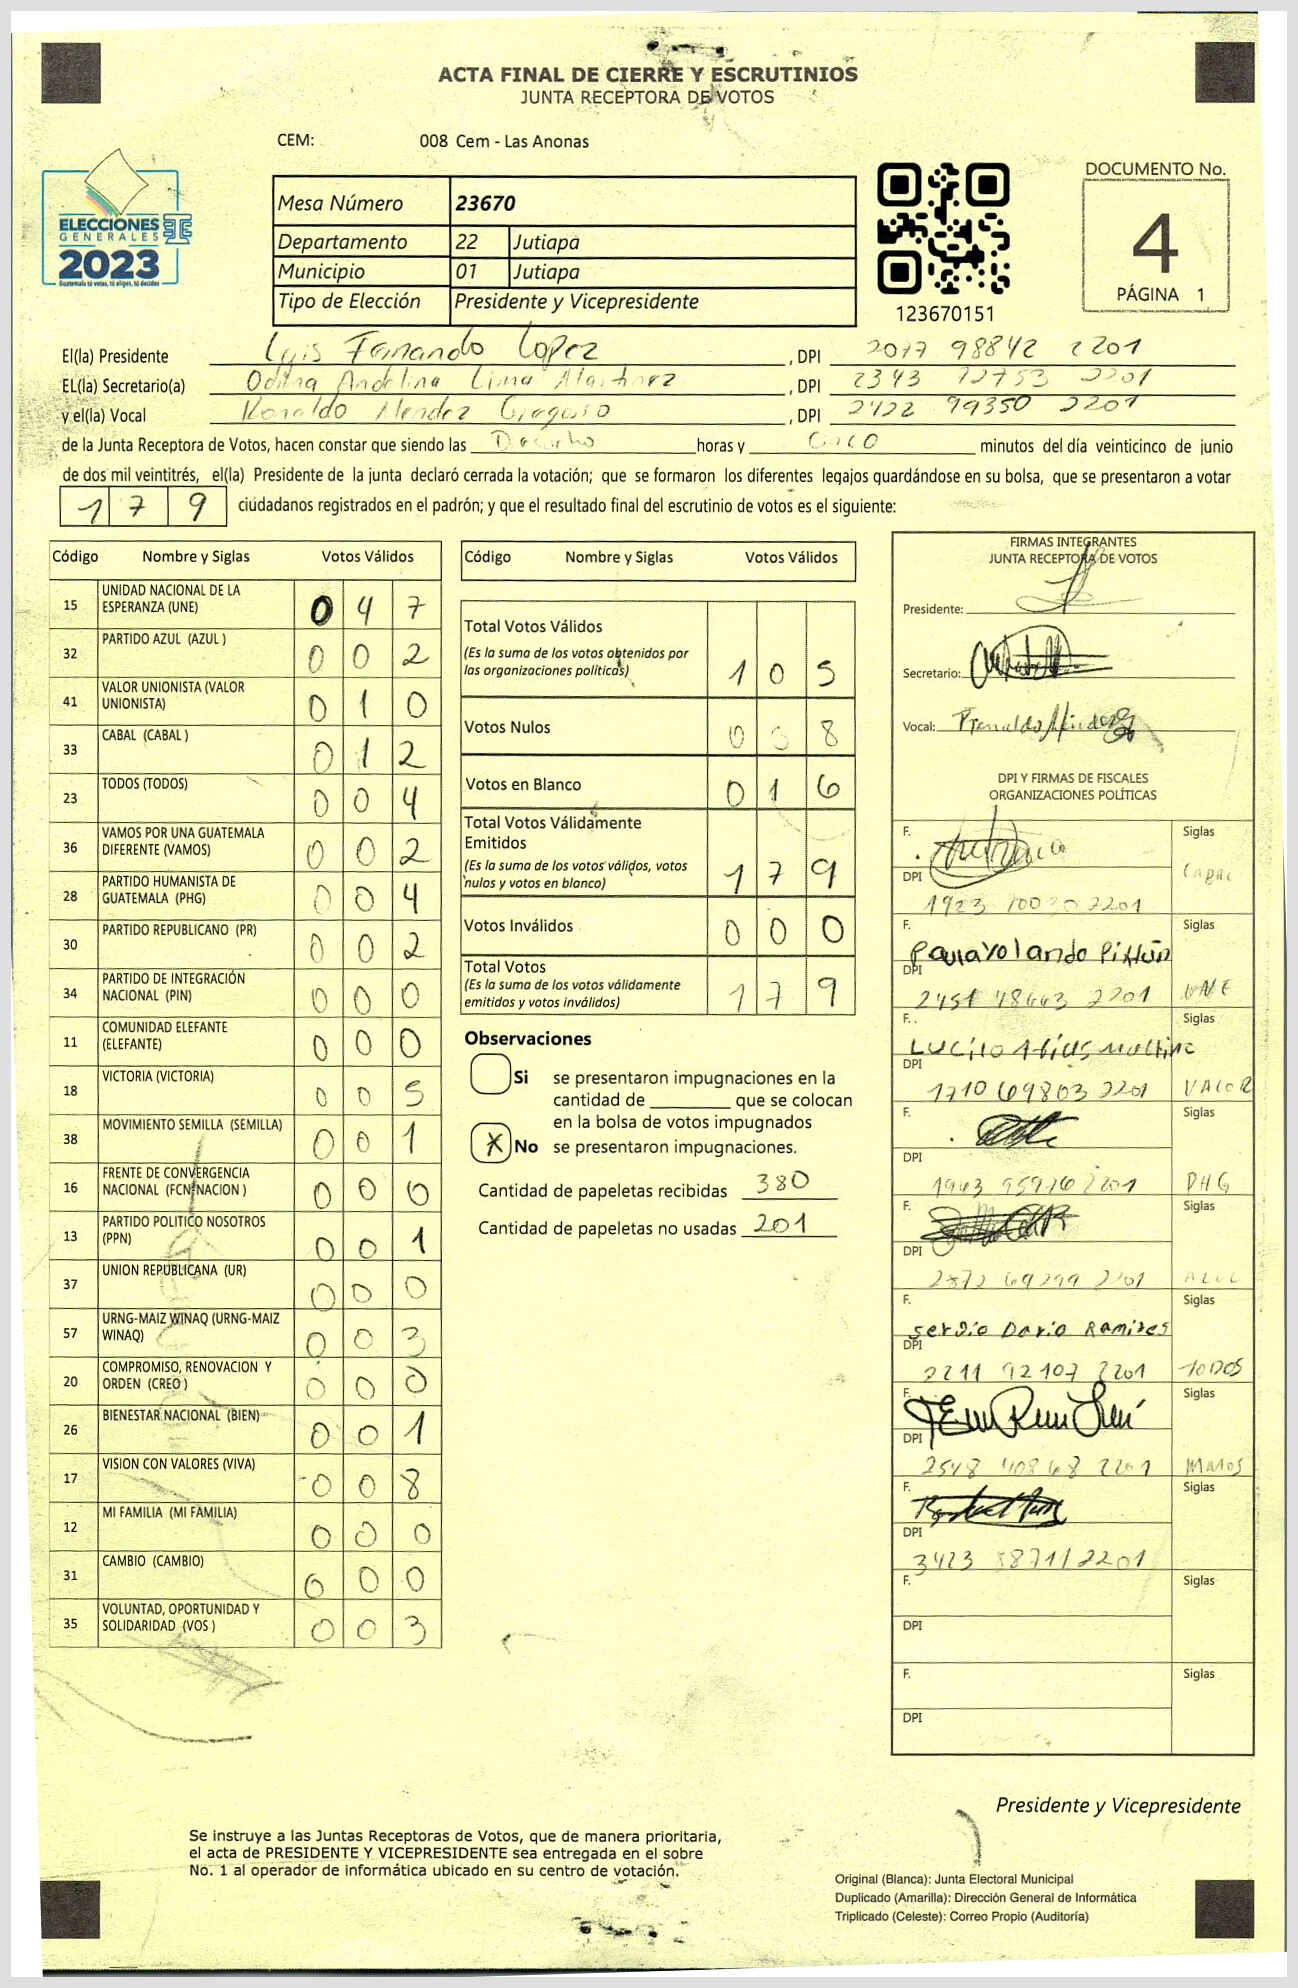 ACTA FINAL DE CIERRE Y ESCRUTINIOS
JUNTA RECEPTORA DE VOTOS
CEM: 008 Cem - Las Anonas
ELECCIONES
GENERALES
2023
Guatemala tú votas, tú eliges, tú decides
Mesa Número 23670
Departamento 22 Jutiapa
Municipio 01 Jutiapa
Tipo de Elección Presidente y Vicepresidente
123670151
DOCUMENTO No.
4
PÁGINA 1
El(la) Presidente Luis Fernando Lopez , DPI 2017 98842 2201
EL(la) Secretario(a) Odilia Andelina Lima Martinez , DPI 2343 72753 2201
y el(la) Vocal Ronaldo Mendez , DPI 2422 99350 2201
de la Junta Receptora de Votos, hacen constar que siendo las horas y Cinco minutos del día veinticinco de junio
de dos mil veintitrés, el(la) Presidente de la junta declaró cerrada la votación; que se formaron los diferentes legajos guardándose en su bolsa, que se presentaron a votar
1 7 9 ciudadanos registrados en el padrón; y que el resultado final del escrutinio de votos es el siguiente:
Código Nombre y Siglas Votos Válidos
15 UNIDAD NACIONAL DE LA
ESPERANZA (UNE) 0 4 7
32 PARTIDO AZUL (AZUL ) 0 0 2
41 VALOR UNIONISTA (VALOR
UNIONISTA) 0 1 0
33 CABAL (CABAL ) 0 1 2
23 TODOS (TODOS) 0 0 4
36 VAMOS POR UNA GUATEMALA
DIFERENTE (VAMOS) 0 0 2
28 PARTIDO HUMANISTA DE
GUATEMALA (PHG) 0 0 4
30 PARTIDO REPUBLICANO (PR) 0 0 2
34 PARTIDO DE INTEGRACIÓN
NACIONAL (PIN) 0 0 0
11 COMUNIDAD ELEFANTE
(ELEFANTE) 0 0 0
18 VICTORIA (VICTORIA) 0 0 5
38 MOVIMIENTO SEMILLA (SEMILLA) 0 0 1
16 FRENTE DE CONVERGENCIA
NACIONAL (FCN-NACION ) 0 0 0
13 PARTIDO POLITICO NOSOTROS
(PPN) 0 0 1
37 UNION REPUBLICANA (UR) 0 0 0
57 URNG-MAIZ WINAQ (URNG-MAIZ
WINAQ) 0 0 3
20 COMPROMISO, RENOVACION Y
ORDEN (CREO ) 0 0 0
26 BIENESTAR NACIONAL (BIEN) 0 0 1
17 VISION CON VALORES (VIVA) 0 0 8
12 MI FAMILIA (MI FAMILIA) 0 0 0
31 CAMBIO (CAMBIO) 0 0 0
35 VOLUNTAD, OPORTUNIDAD Y
SOLIDARIDAD (VOS ) 0 0 3
Código Nombre y Siglas Votos Válidos
Total Votos Válidos
(Es la suma de los votos obtenidos por
las organizaciones políticas) 1 0 5
Votos Nulos 0 5 8
Votos en Blanco 0 1 6
Total Votos Válidamente
Emitidos
(Es la suma de los votos válidos, votos
nulos y votos en blanco) 1 7 9
Votos Inválidos 0 0 0
Total Votos
(Es la suma de los votos válidamente
emitidos y votos inválidos) 1 7 9
Observaciones
Si se presentaron impugnaciones en la
cantidad de ________ que se colocan
en la bolsa de votos impugnados
X No se presentaron impugnaciones.
Cantidad de papeletas recibidas 380
Cantidad de papeletas no usadas 201
FIRMAS INTEGRANTES
JUNTA RECEPTORA DE VOTOS
Presidente:
Secretario:
Vocal: Ronaldo Méndez
DPI Y FIRMAS DE FISCALES
ORGANIZACIONES POLÍTICAS
F. Siglas
DPI CABAL
1923 2201
F. Siglas
DPI
2451 48663 2201 UNE
F. Siglas
DPI
1710 69803 2201 VALOR
F. Siglas
DPI
1943 2201 PHG
F. Siglas
DPI
2872 69299 2201 AZUL
F. Siglas
Sergio Dario Ramires
DPI
2211 92107 2201 TODOS
F. Siglas
DPI
2548 40868 2201
F. Siglas
DPI
3423 2201
F. Siglas
DPI
F. Siglas
DPI
Presidente y Vicepresidente
Se instruye a las Juntas Receptoras de Votos, que de manera prioritaria,
el acta de PRESIDENTE Y VICEPRESIDENTE sea entregada en el sobre
No. 1 al operador de informática ubicado en su centro de votación.
Original (Blanca): Junta Electoral Municipal
Duplicado (Amarilla): Dirección General de Informática
Triplicado (Celeste): Correo Propio (Auditoría)